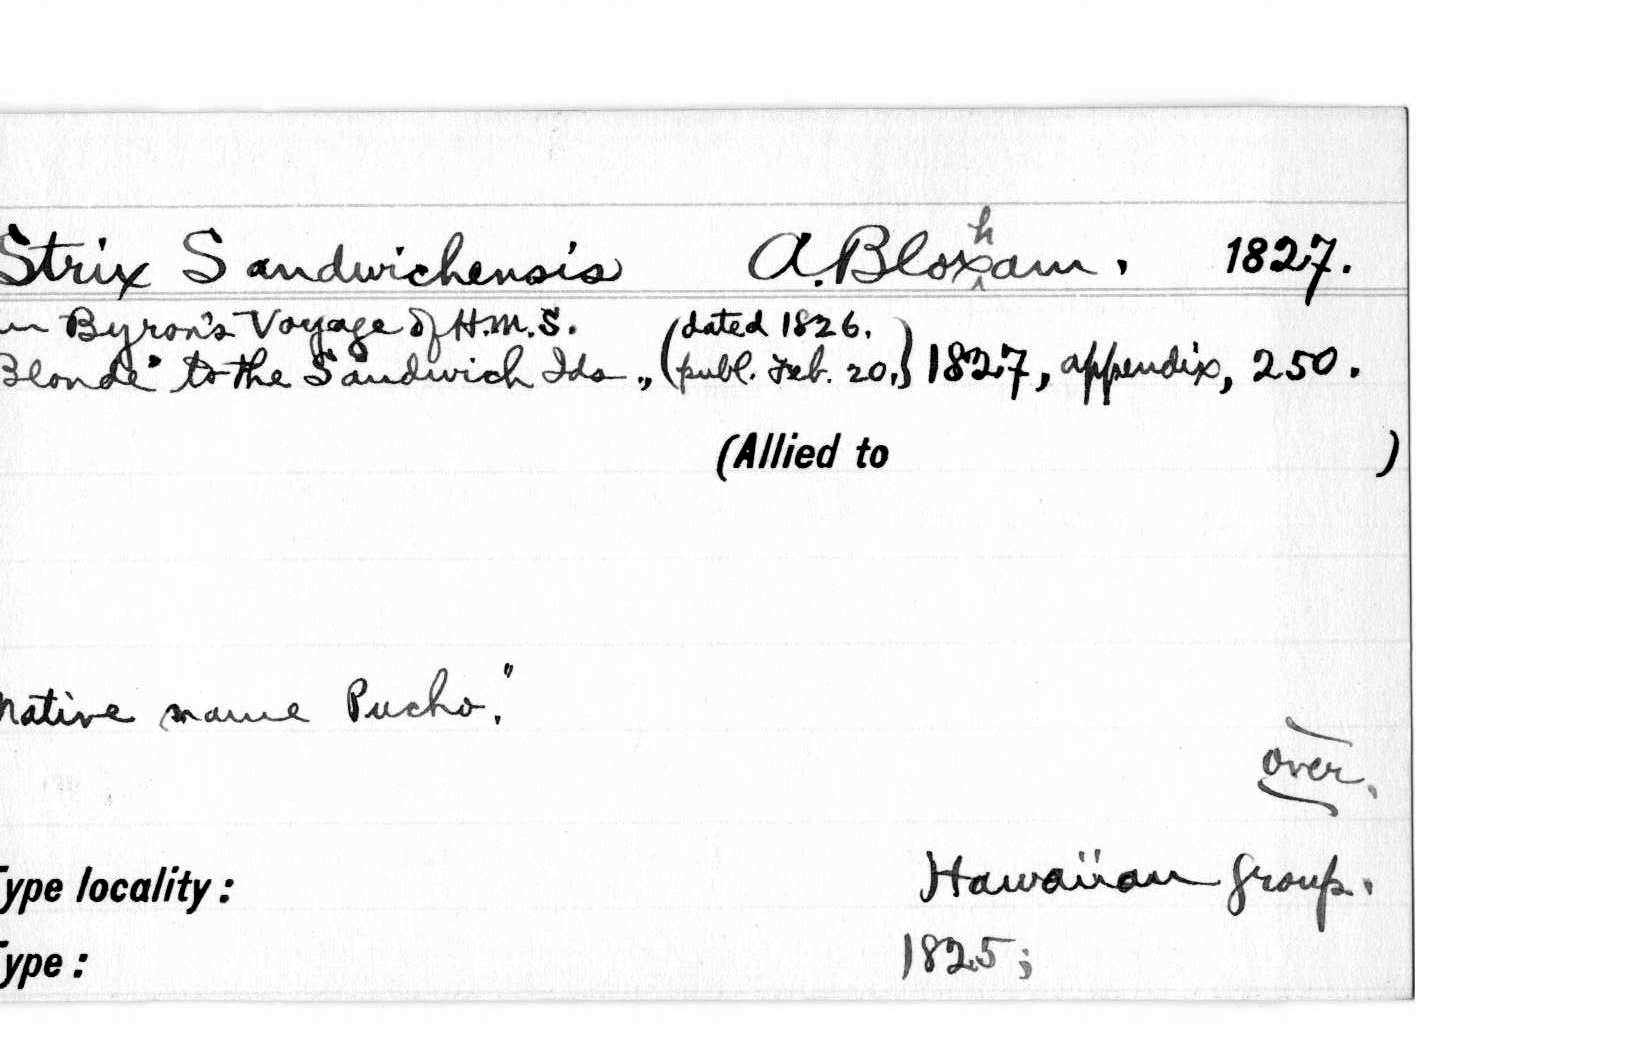 Strix Sandwichensis A. Bloxham. 1827.
Byron's Voyage of H.M.S. (dated 1826.
Blonde" to the Sandwich Ids., publ. Feb. 20,) 1827, appendix, 250.
(Allied to )
native name Pucho."
over.
Type locality: Hawaiian group.
Type: 1825;